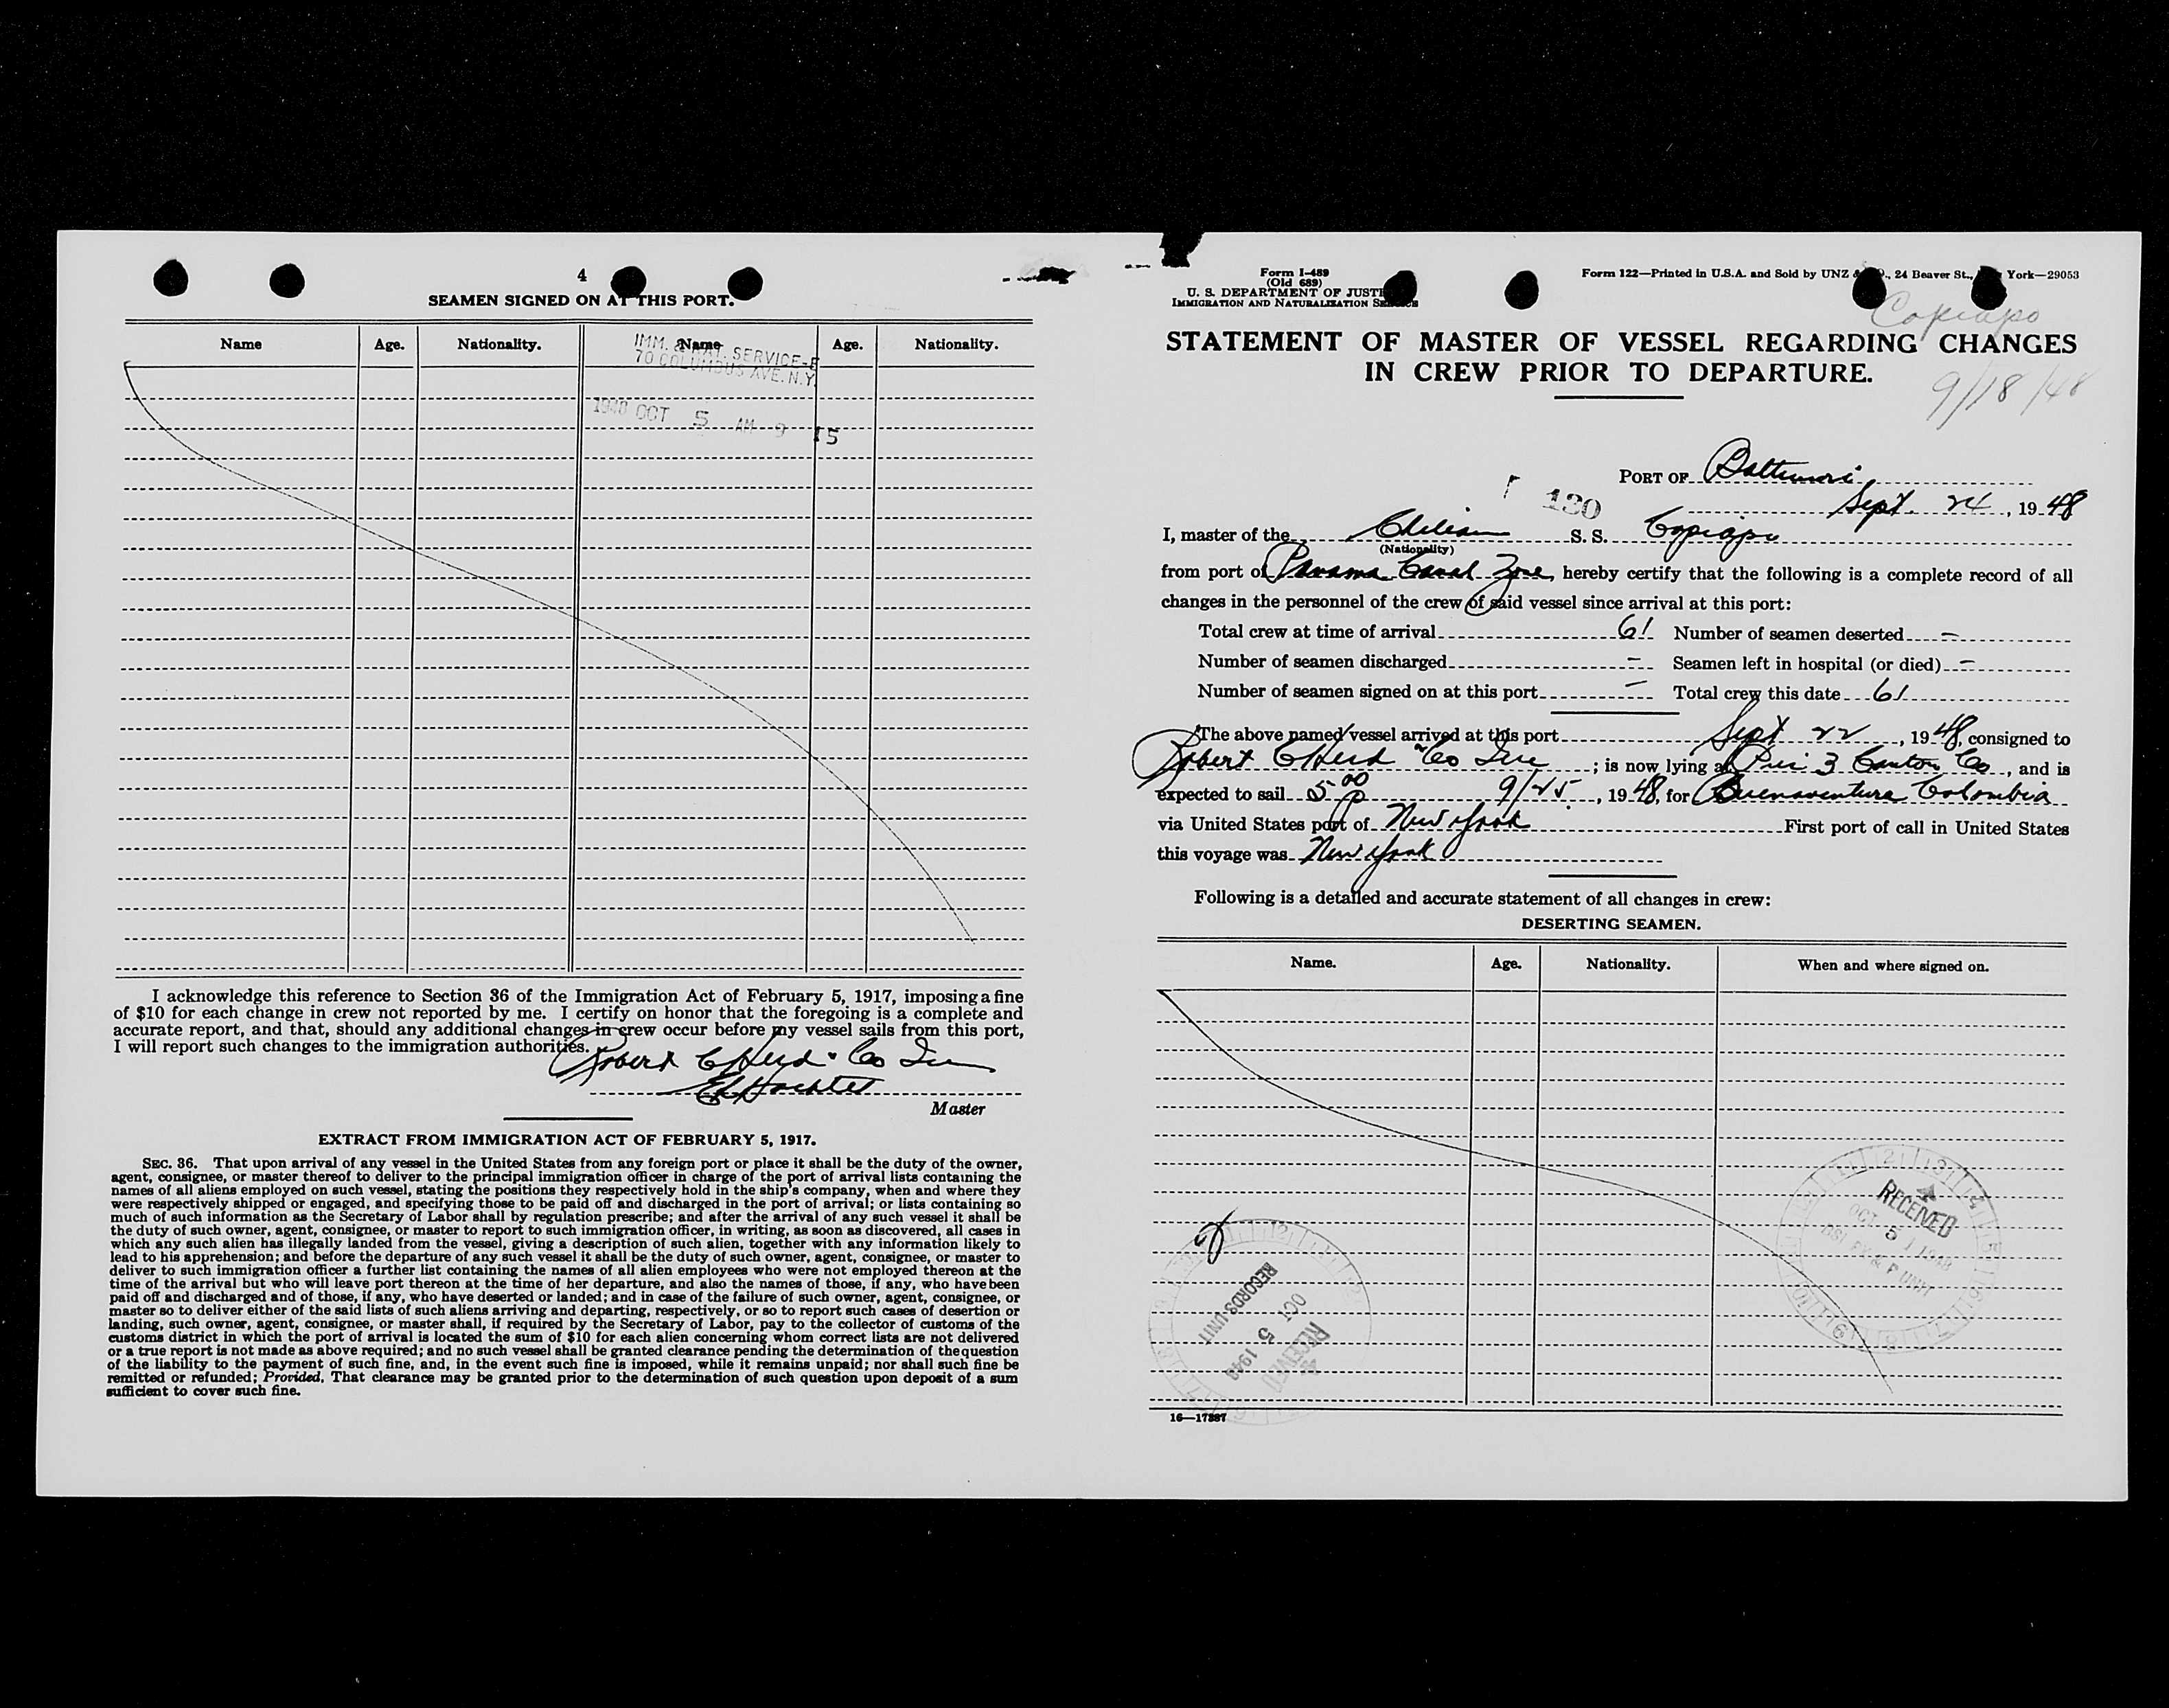 4
SEAMEN SIGNED ON AT THIS PORT.
Name Age. Nationality. Name Age. Nationality.
IMM. & NAT. SERVICE-E
70 COLUMBUS AVE. N.Y.
1948 OCT 5 AM 9 15
I acknowledge this reference to Section 36 of the Immigration Act of February 5, 1917, imposing a fine
of $10 for each change in crew not reported by me. I certify on honor that the foregoing is a complete and
accurate report, and that, should any additional changes in crew occur before my vessel sails from this port,
I will report such changes to the immigration authorities.
Robert C Herd & Co Inc
Master
EXTRACT FROM IMMIGRATION ACT OF FEBRUARY 5, 1917.
SEC. 36. That upon arrival of any vessel in the United States from any foreign port or place it shall be the duty of the owner,
agent, consignee, or master thereof to deliver to the principal immigration officer in charge of the port of arrival lists containing the
names of all aliens employed on such vessel, stating the positions they respectively hold in the ship's company, when and where they
were respectively shipped or engaged, and specifying those to be paid off and discharged in the port of arrival; or lists containing so
much of such information as the Secretary of Labor shall by regulation prescribe; and after the arrival of any such vessel it shall be
the duty of such owner, agent, consignee, or master to report to such immigration officer, in writing, as soon as discovered, all cases in
which any such alien has illegally landed from the vessel, giving a description of such alien, together with any information likely to
lead to his apprehension; and before the departure of any such vessel it shall be the duty of such owner, agent, consignee, or master to
deliver to such immigration officer a further list containing the names of all alien employees who were not employed thereon at the
time of the arrival but who will leave port thereon at the time of her departure, and also the names of those, if any, who have been
paid off and discharged and of those, if any, who have deserted or landed; and in case of the failure of such owner, agent, consignee, or
master so to deliver either of the said lists of such aliens arriving and departing, respectively, or so to report such cases of desertion or
landing, such owner, agent, consignee, or master shall, if required by the Secretary of Labor, pay to the collector of customs of the
customs district in which the port of arrival is located the sum of $10 for each alien concerning whom correct lists are not delivered
or a true report is not made as above required; and no such vessel shall be granted clearance pending the determination of the question
of the liability to the payment of such fine, and, in the event such fine is imposed, while it remains unpaid; nor shall such fine be
remitted or refunded; Provided, That clearance may be granted prior to the determination of such question upon deposit of a sum
sufficient to cover such fine.
Form I-489
(Old 689)
U. S. DEPARTMENT OF JUSTI
IMMIGRATION AND NATURALIZATION SERVICE
Form 122—Printed in U.S.A. and Sold by UNZ & CO., 24 Beaver St., New York—29053
Copiapo
STATEMENT OF MASTER OF VESSEL REGARDING CHANGES
IN CREW PRIOR TO DEPARTURE.
9/18/48
PORT OF Baltimore
130
Sept. 24, 1948
I, master of the Chilean S. S. Copiapo
(Nationality)
from port of Panama Canal Zone, hereby certify that the following is a complete record of all
changes in the personnel of the crew of said vessel since arrival at this port:
Total crew at time of arrival 61 Number of seamen deserted -
Number of seamen discharged - Seamen left in hospital (or died) -
Number of seamen signed on at this port - Total crew this date 61
The above named vessel arrived at this port Sept 22, 1948, consigned to
Robert C Herd & Co Inc; is now lying at Pier 3 Canton Co, and is
expected to sail 5 00 P 9/25, 1948, for Buenaventura Colombia
via United States port of New York First port of call in United States
this voyage was New York
Following is a detailed and accurate statement of all changes in crew:
DESERTING SEAMEN.
Name. Age. Nationality. When and where signed on.
RECEIVED
OCT 5 1948
RECORDS UNIT
OCT 5 1948
RECEIVED
16—17887